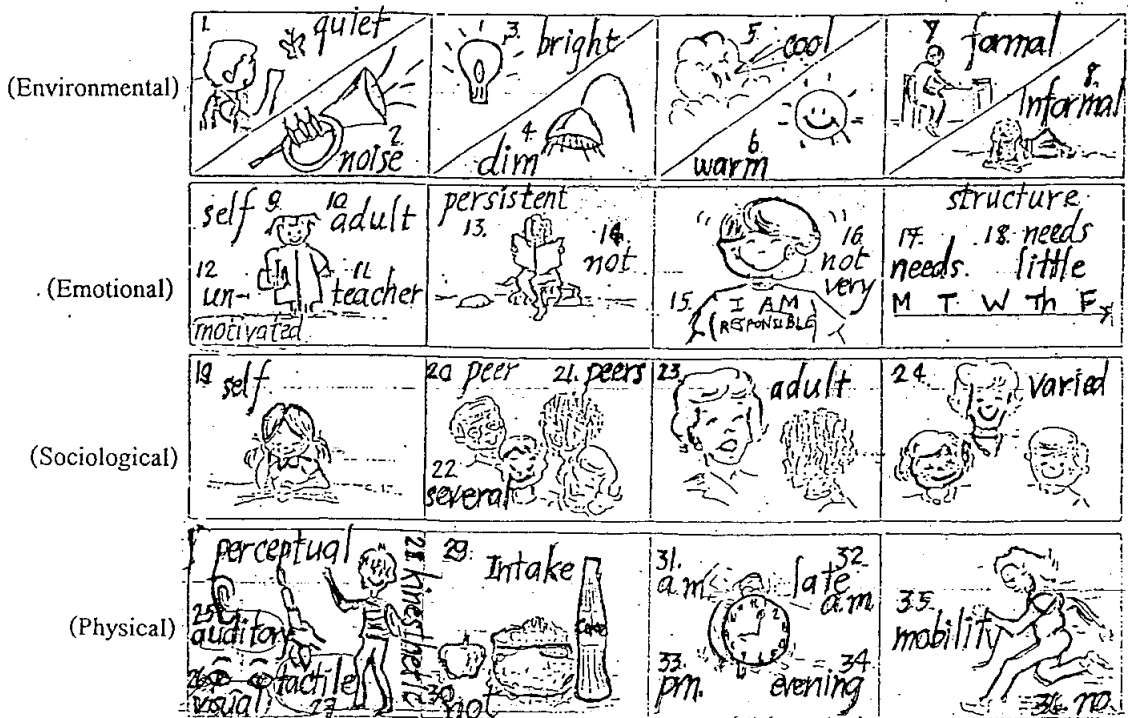 (Environmental)
1. quiet
2. noise
3. bright
4. dim
5. cool
6. warm
7. formal
8. Informal
(Emotional)
self 9. 10. adult
12 un-motivated
11. teacher
persistent
13. 14. not
15. I AM RESPONSIBLE
16. not very
structure
17. needs
18. needs little
M T. W Th F
(Sociological)
19. self
20 peer 21. peers
22 several
23. adult
24. varied
(Physical)
perceptual
25. auditory
26. visual
tactile 27
28 kinesthetic
29. Intake
Coke
30 not
31. a.m.
32. late a.m.
33. p.m.
34. evening
35. mobility
36. no